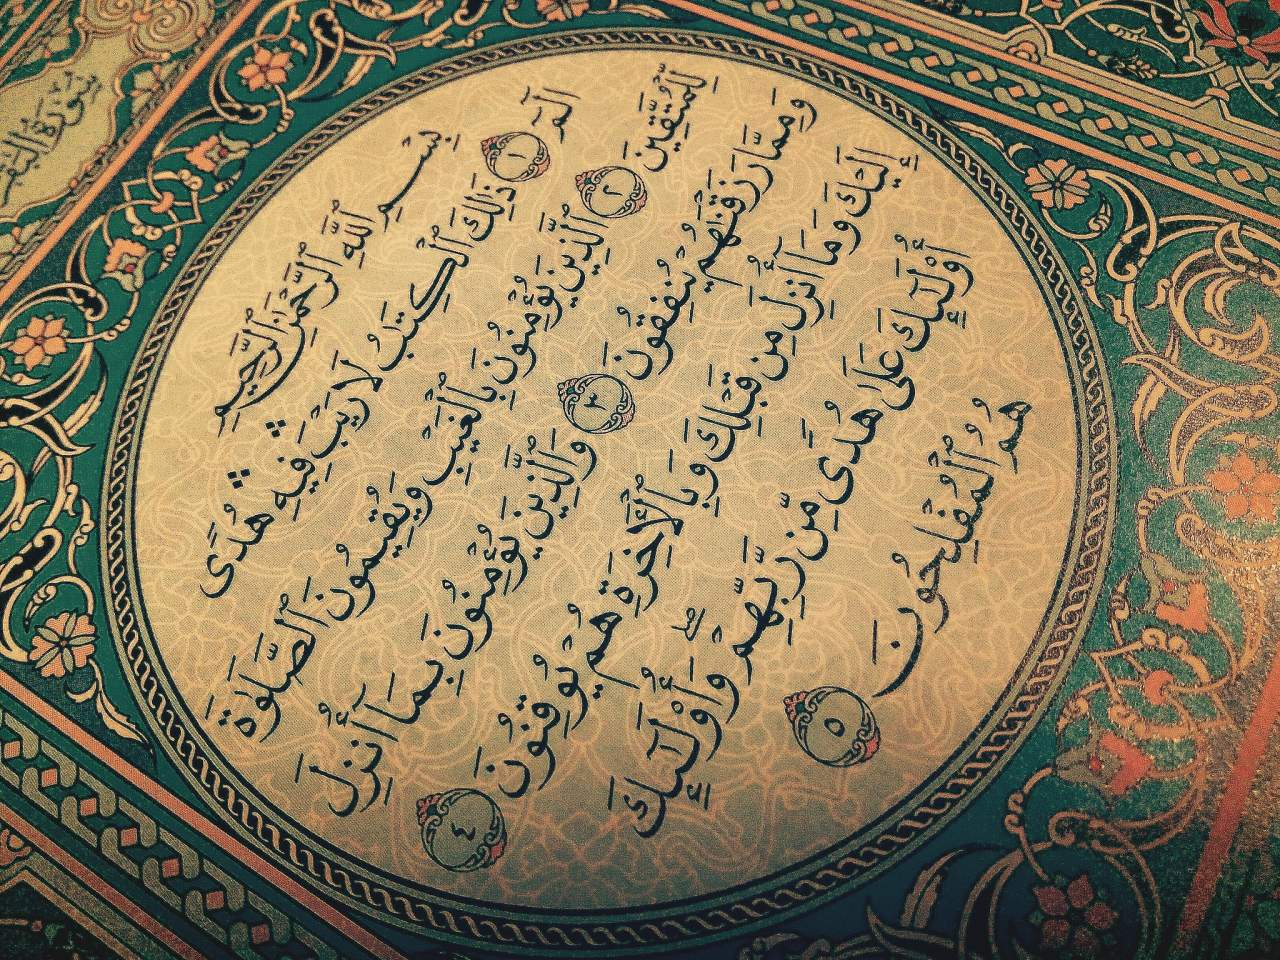 سُورَةُ
بِسْمِ ٱللَّهِ ٱلرَّحْمَٰنِ ٱلرَّحِيمِ
الٓمٓ ١ ذَٰلِكَ ٱلْكِتَٰبُ لَا رَيْبَ ۛ فِيهِ ۛ هُدًى
لِّلْمُتَّقِينَ ٢ ٱلَّذِينَ يُؤْمِنُونَ بِٱلْغَيْبِ وَيُقِيمُونَ ٱلصَّلَوٰةَ
وَمِمَّا رَزَقْنَٰهُمْ يُنفِقُونَ ٣ وَٱلَّذِينَ يُؤْمِنُونَ بِمَآ أُنزِلَ
إِلَيْكَ وَمَآ أُنزِلَ مِن قَبْلِكَ وَبِٱلْأَخِرَةِ هُمْ يُوقِنُونَ ٤
أُو۟لَٰٓئِكَ عَلَىٰ هُدًى مِّن رَّبِّهِمْ ۖ وَأُو۟لَٰٓئِكَ
هُمُ ٱلْمُفْلِحُونَ ٥